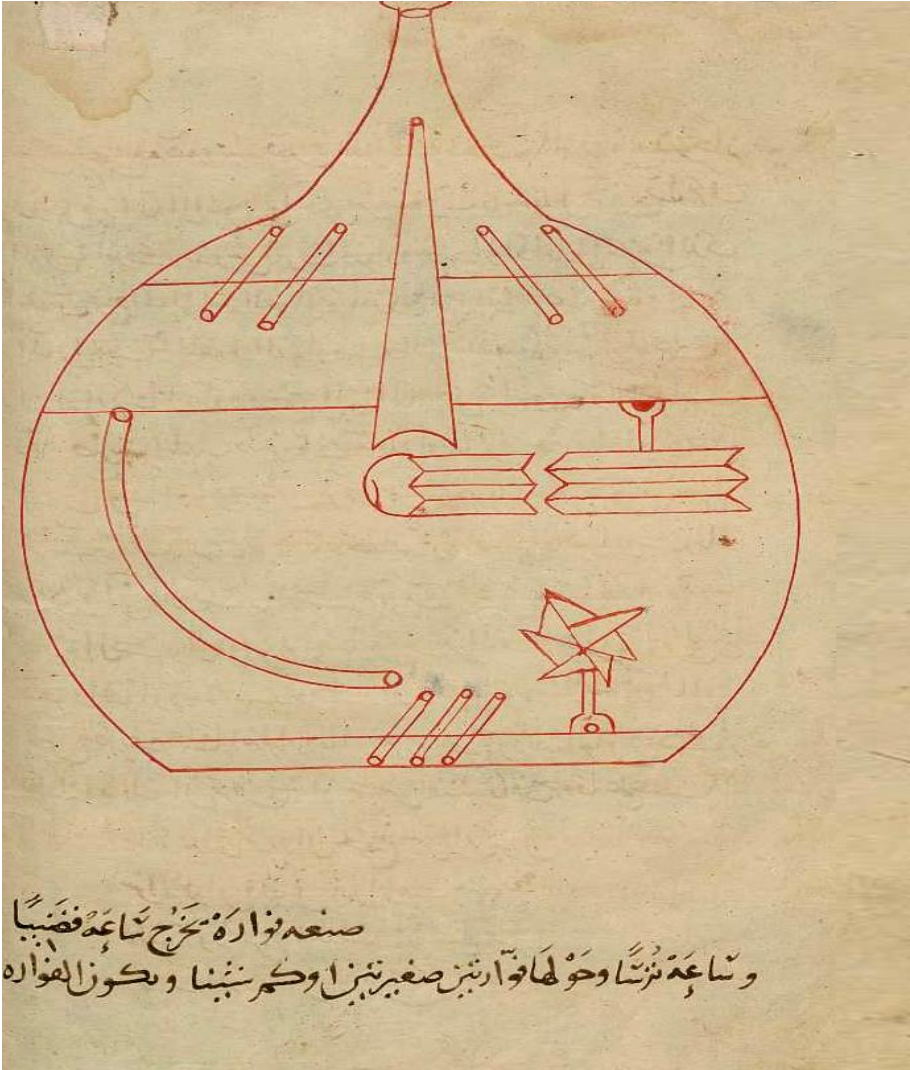 صنعه فوارة تخرج سَاعَةً قضيبًا
وسَاعَة تُرسًا وحَوْلهَا فوّارتين صغيرتين اوكم شئنا ويكون الفواره